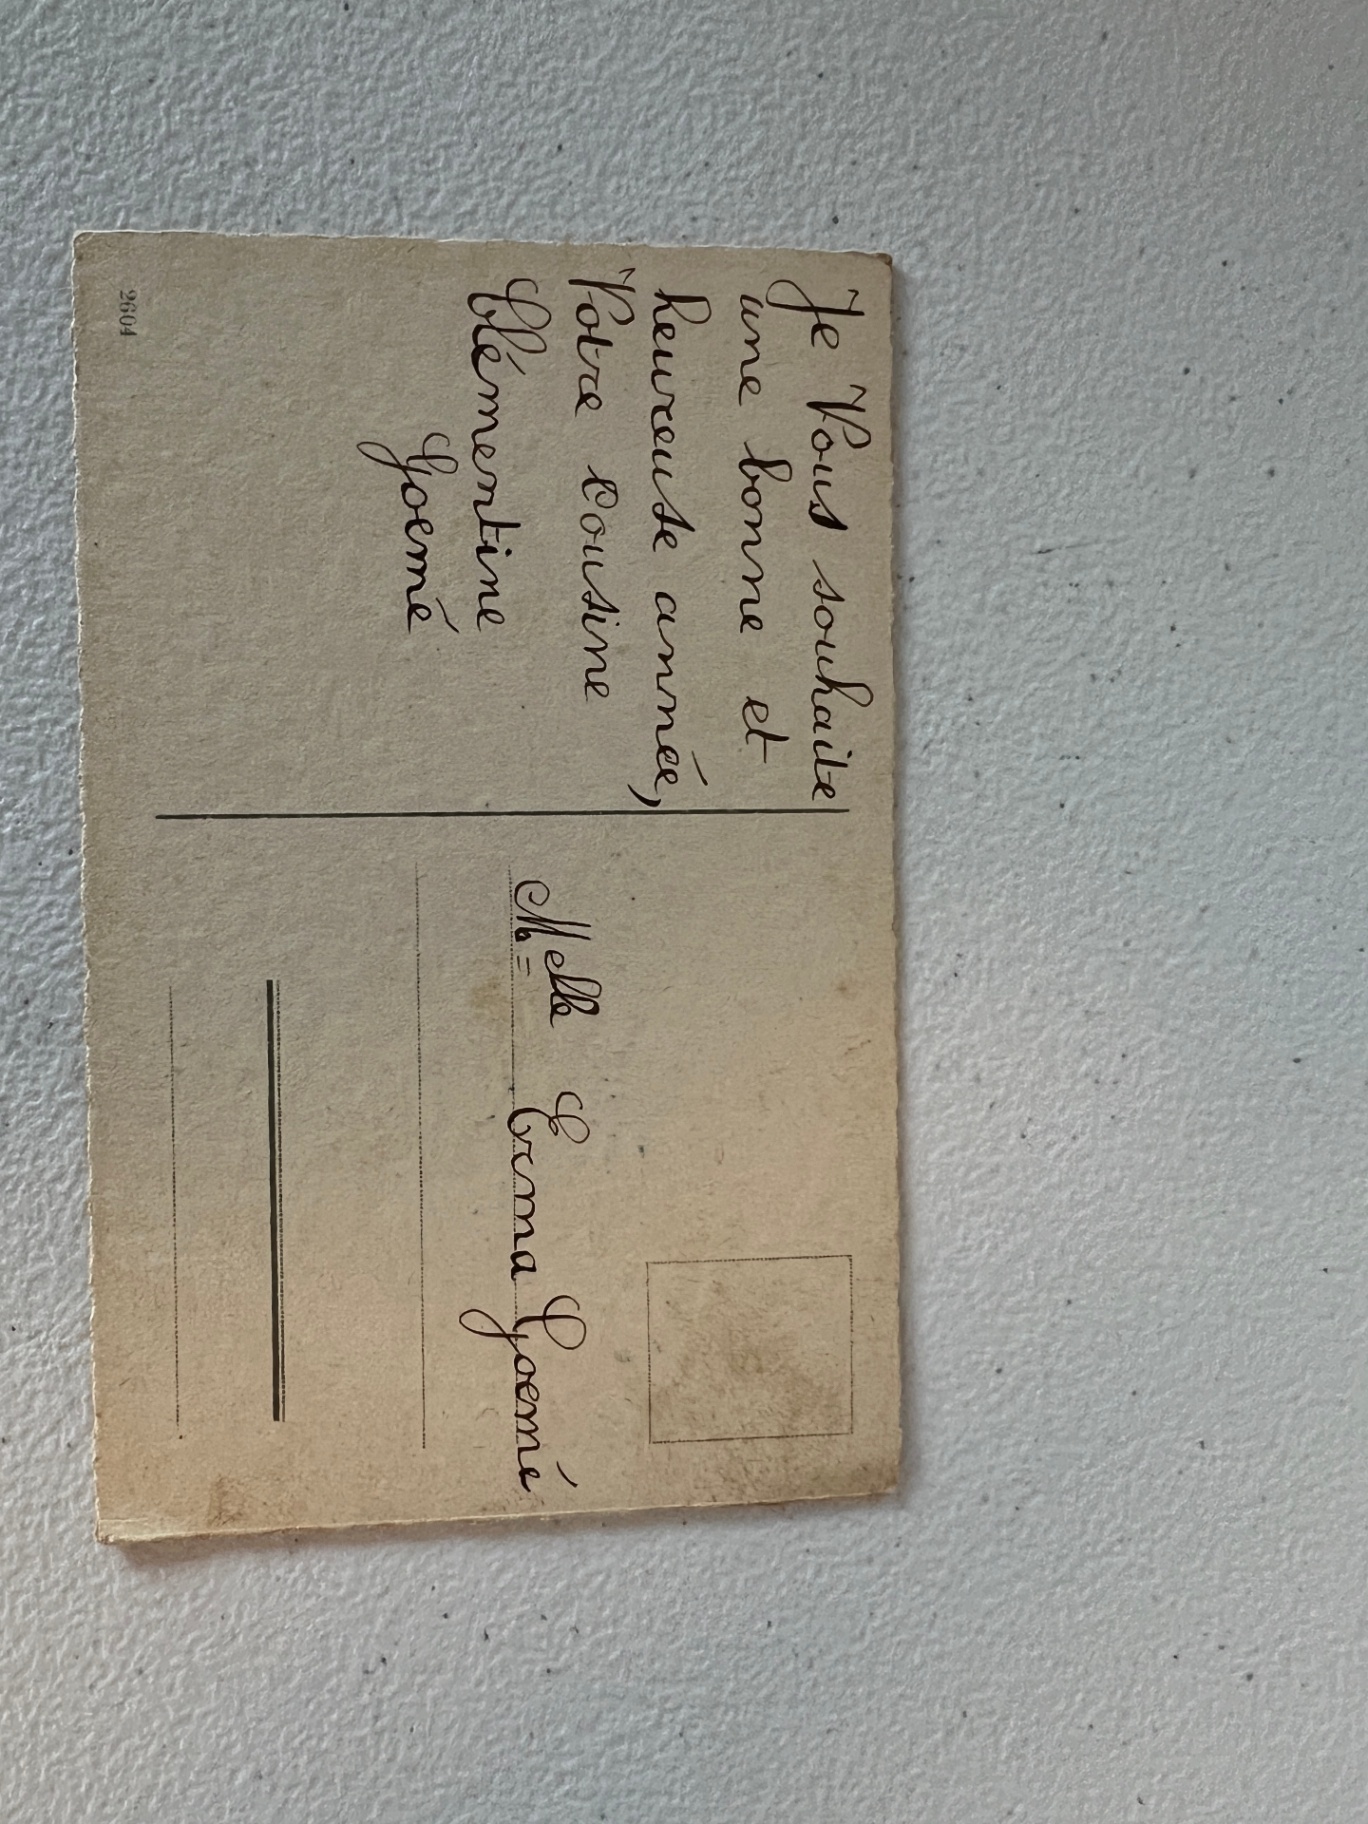 Je Vous souhaite
une bonne et
heureuse année,
Votre Cousine
Clémentine
Goemé
2604
Melle Erna Goemé